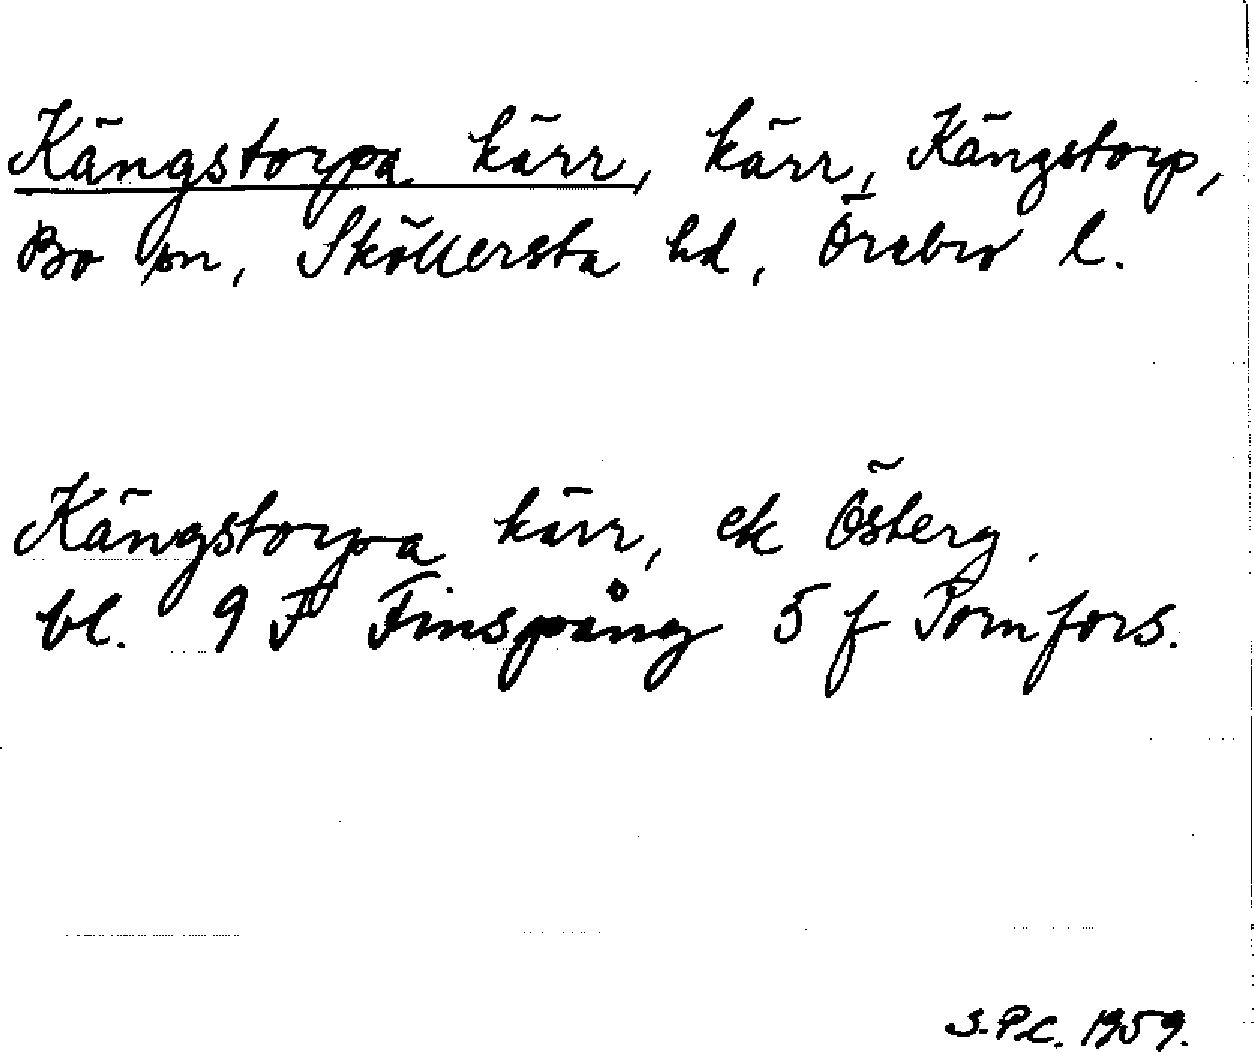 Kängstorpa kärr, kärr, Kängstorp,
Bo sn, Sköllersta hd, Örebro l.
Kängstorpa kärr, ek Österg.
bl. 9 F Finspång 5 f Pornfors.
S.P.C. 1959.